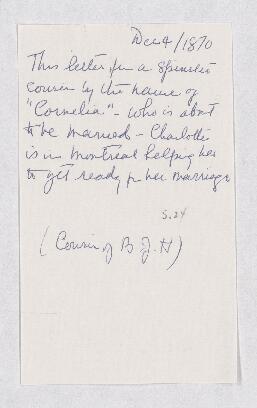 Dec 4/1870
This letter from a spinster
cousin by the name of
"Cornelia" - who is about
to be married - Charlotte
is in Montreal helping her
to get ready for her marriage
S.24
(Cousin of B J. H)